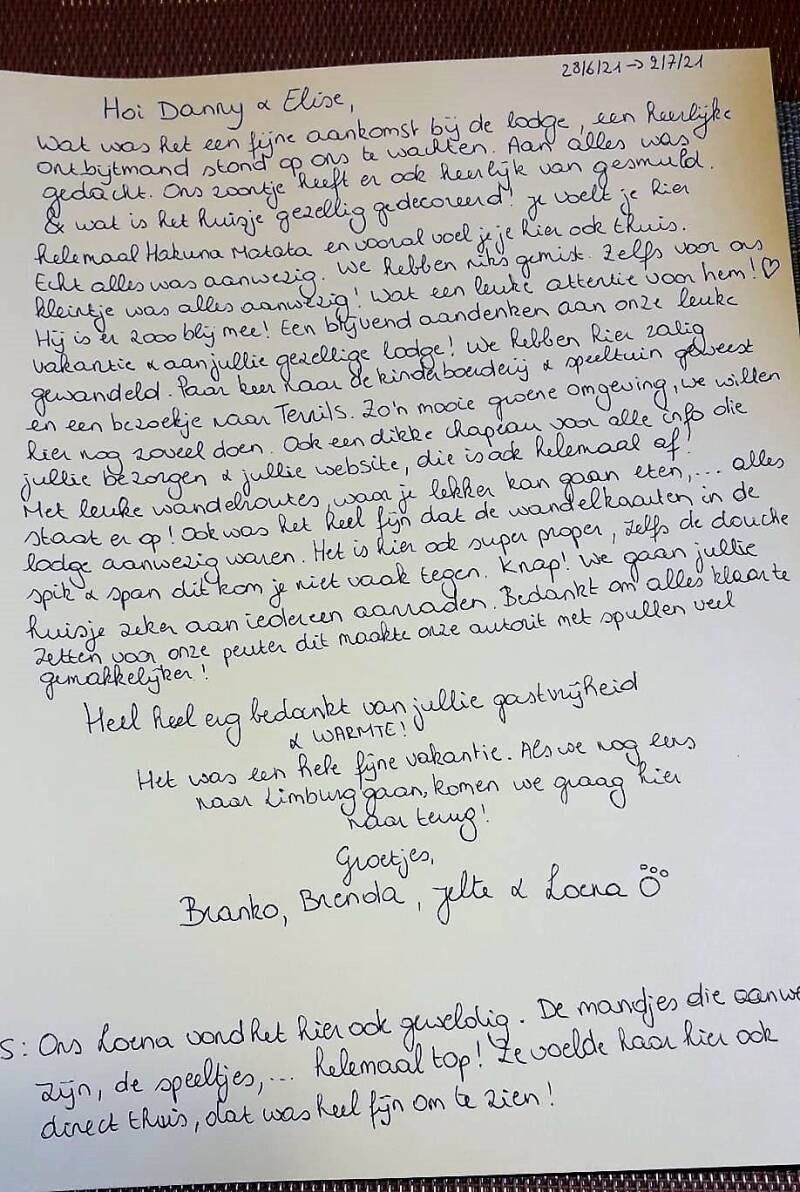 28/6/21 → 2/7/21
Hoi Danny & Elise,
Wat was het een fijne aankomst bij de lodge, een heerlijke
ontbijtmand stond op ons te wachten. Aan alles was
gedacht. Ons zoontje heeft er ook heerlijk van gesmuld.
& wat is het huisje gezellig gedecoreerd! je voelt je hier
helemaal Hakuna Matata en vooral voel je je hier ook thuis.
Echt alles was aanwezig. We hebben niks gemist. Zelfs voor ons
kleintje was alles aanwezig! Wat een leuke attentie voor hem! ♡
Hij is er zooo blij mee! Een blijvend aandenken aan onze leuke
vakantie & aan jullie gezellige lodge! We hebben hier zalig
gewandeld. Paar keer naar de kinderboerderij & speeltuin geweest
en een bezoekje naar Terrils. Zo'n mooie groene omgeving, we willen
hier nog zoveel doen. Ook een dikke chapeau voor alle info die
jullie bezorgen & jullie website, die is ook helemaal af!
Met leuke wandelroutes, waar je lekker kan gaan eten, ... alles
staat er op! Ook was het heel fijn dat de wandelkaarten in de
lodge aanwezig waren. Het is hier ook super proper, zelfs de douche
spik & span dit kom je niet vaak tegen. Knap! We gaan jullie
huisje zeker aan iedereen aanraden. Bedankt om alles klaar te
zetten voor onze peuter dit maakte onze autorit met spullen veel
gemakkelijker!
Heel heel erg bedankt van jullie gastvrijheid
& WARMTE!
Het was een hele fijne vakantie. Als we nog eens
naar Limburg gaan, komen we graag hier
naar terug!
Groetjes,
Branko, Brenda, Jelte & Loena
S: Ons Loena vond het hier ook geweldig. De mandjes die aanwe
zijn, de speeltjes, ... helemaal top! Ze voelde haar hier ook
direct thuis, dat was heel fijn om te zien!